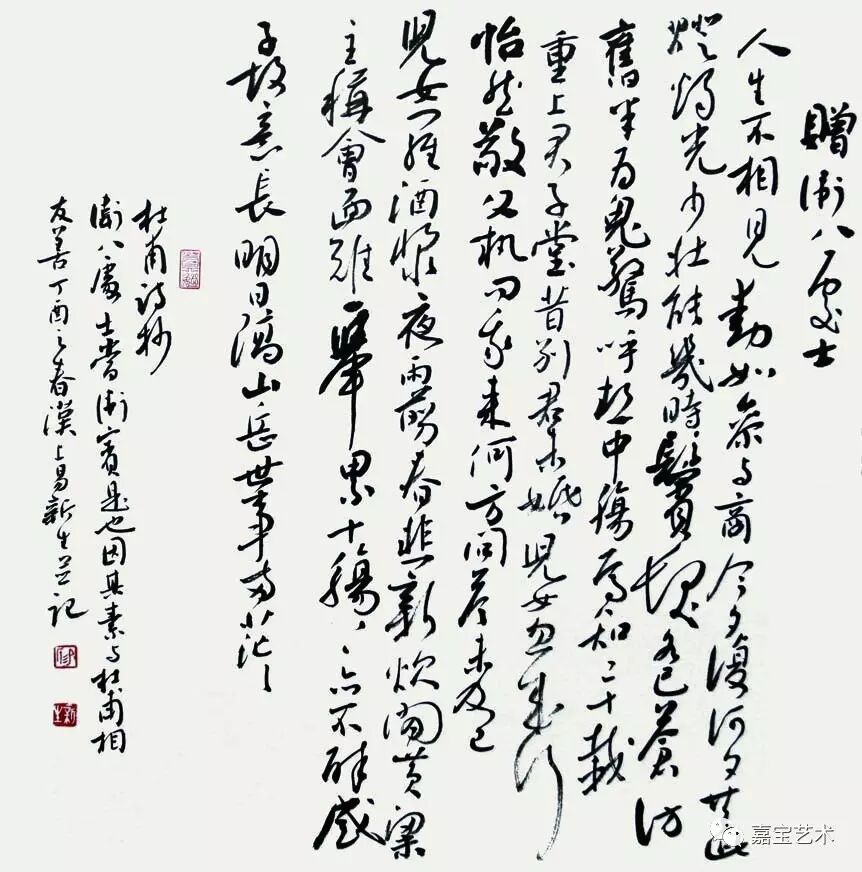 贈衛八處士
人生不相見動如參与商今夕復何夕共此
燈燭光少壯能幾時鬢髮各已蒼訪
舊半為鬼驚呼熱中腸焉知二十載
重上君子堂昔別君未婚兒女忽成行
怡然敬父執問我來何方問答未及已
兒女羅酒漿夜雨剪春韭新炊間黃粱
主稱會面難一舉累十觴々々亦不醉感
子故意長明日隔山岳世事兩茫々
杜甫詩抄
衛八處士當衛賓是也因其素与杜甫相
友善丁酉之春漢上易新生並記
嘉宝艺术